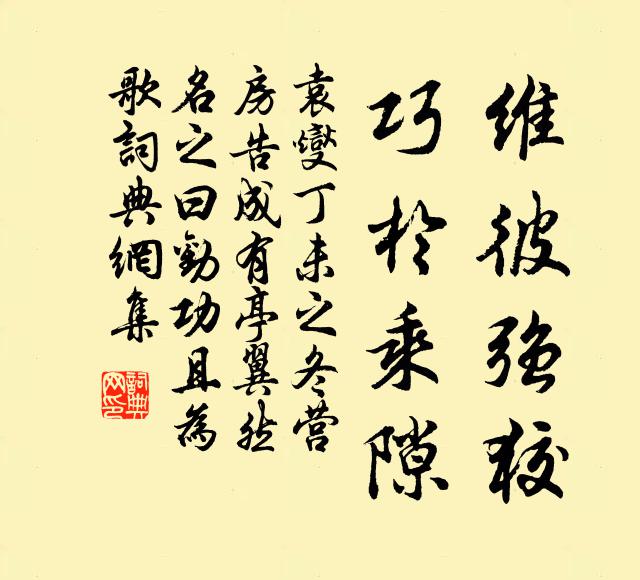 維彼强狡
巧於乘隙
袁燮丁未之冬营
房告成有亭翼然
名之曰勸功且為
歌詞典網集
詞典
网印